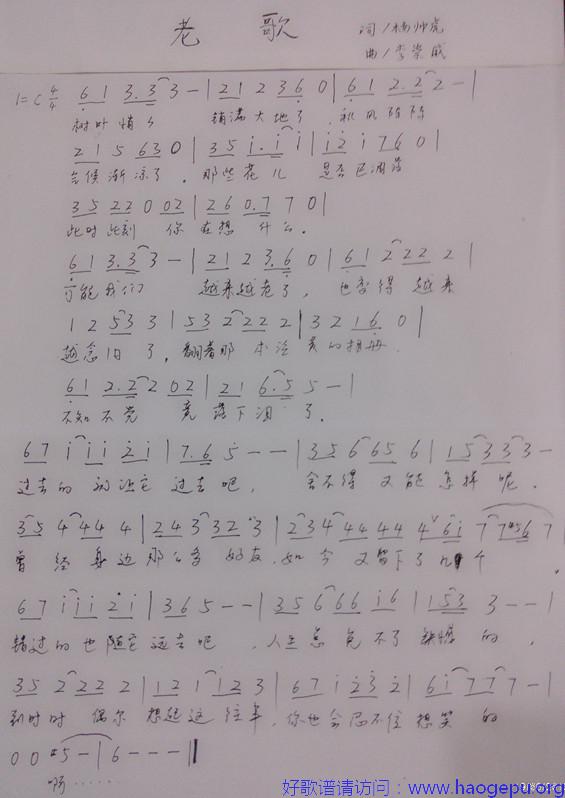 老 歌
词/杨帅虎
曲/李崇威
1=C 4/4 6 1 3.3 3 - | 2 1 2 3 6 0 | 6 1 2.2 2 - |
树叶悄 铺满大地了 , 秋风阵阵
2 1 5 6 3 0 | 3 5 i.i i | i 2 i 7 6 0 |
气候渐凉了 , 那些花儿 是否已凋落
3 5 2 2 0 0 2 | 2 6 0.7 7 0 |
此时此刻 你在想什么 .
6 1 3.3 3 - | 2 1 2 3.6 0 | 6 1 2 2 2 2 |
可能我们 越来越老了 , 也变得 越来
1 2 5 3 3 | 5 3 2 2 2 2 | 3 2 1 6 0 |
越念旧了 , 翻着那本泛黄的相册 .
6 1 2.2 2 0 2 | 2 1 6.5 5 - |
不知不觉 竟落下泪了 .
6 7 i i i 2 i | 7.6 5 - - | 3 5 6 6 5 6 | 1 5 3 3 3 - |
过去的就让它过去吧 , 舍不得又能怎样呢 .
3 5 4 4 4 4 | 2 4 3 3 2 3 | 2 3 4 4 4 4 4 4 6 i 7 7 #5 6 7
曾经身边那么多好友 , 如今又留下了几个 .
6 7 i i i 2 i | 3 6 5 - - | 3 5 6 6 6 i 6 | 1 5 3 3 - - |
错过的也随它远去吧 , 人生怎免不了缺憾的 .
3 5 2 2 2 2 | 1 2 1 1 2 3 | 6 7 i 2 3 2 | 6 i 7 7 7 - |
到时时偶尔想起这往事 , 你也会忍不住想笑的
0 0 #5 - | 6 - - - ||
啊……
好歌谱请访问：www.haogepu.org